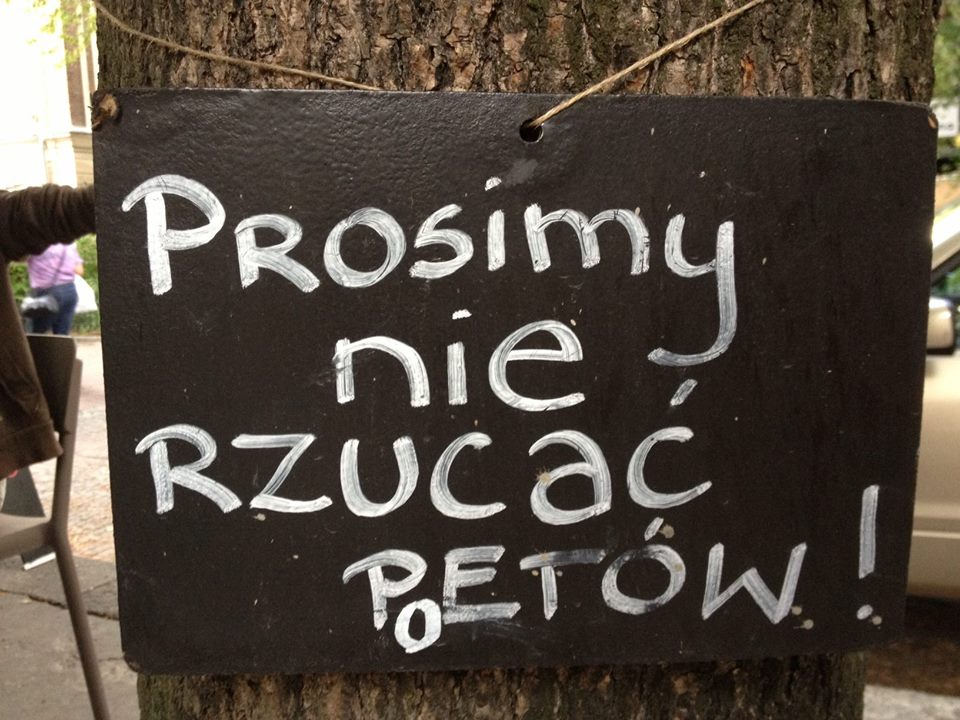 PROSimy
nie
RZUCAĆ
PoETÓW!